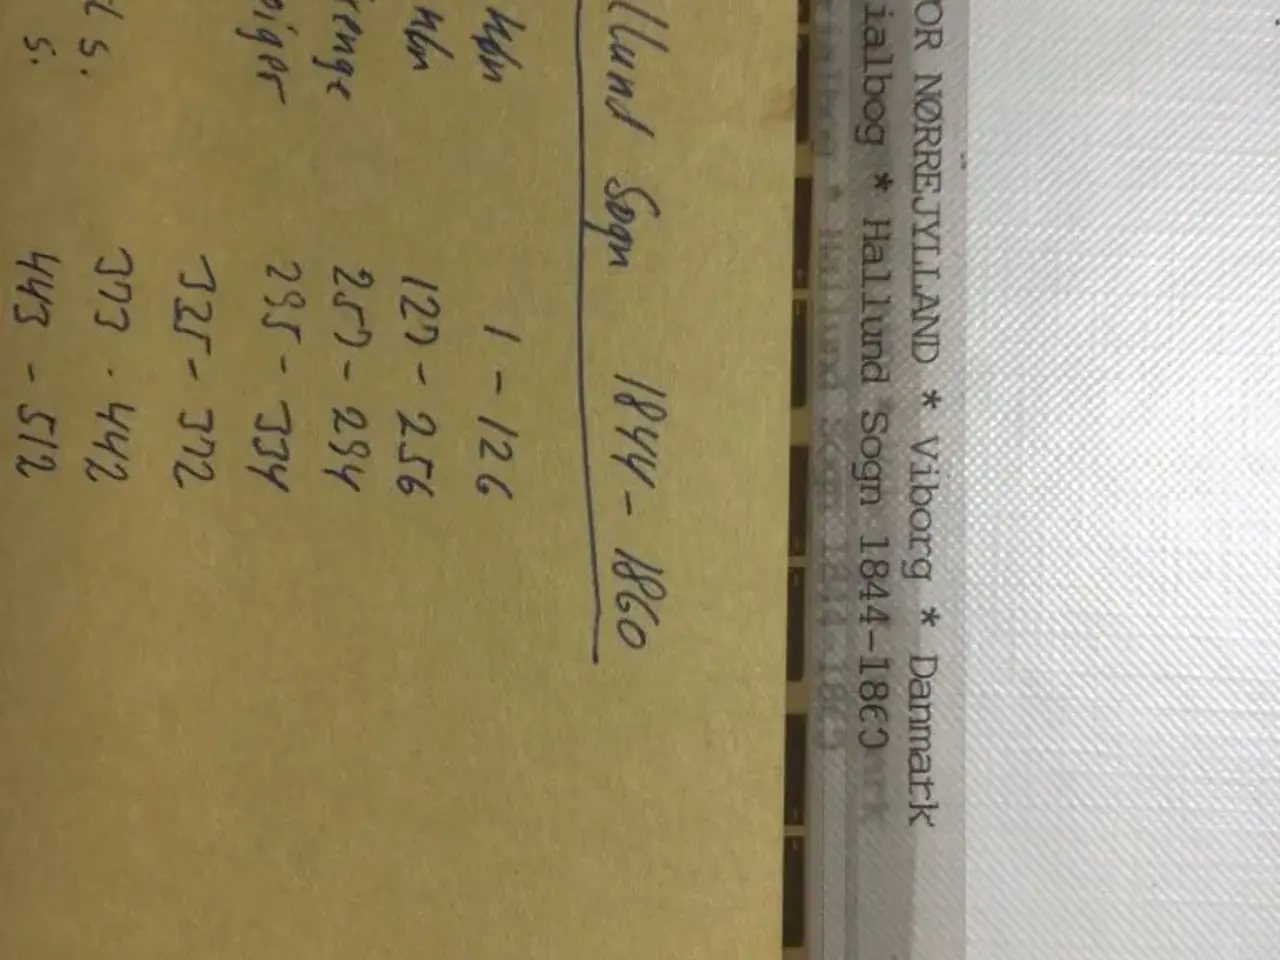 OR NØRREJYLLAND * Viborg * Danmark
ialbog * Hallund Sogn 1844-1860
llund Sogn 1844 - 1860
1 - 126
127 - 256
enge 257 - 294
iger 295 - 334
335 - 372
S. 373 - 442
S. 443 - 512